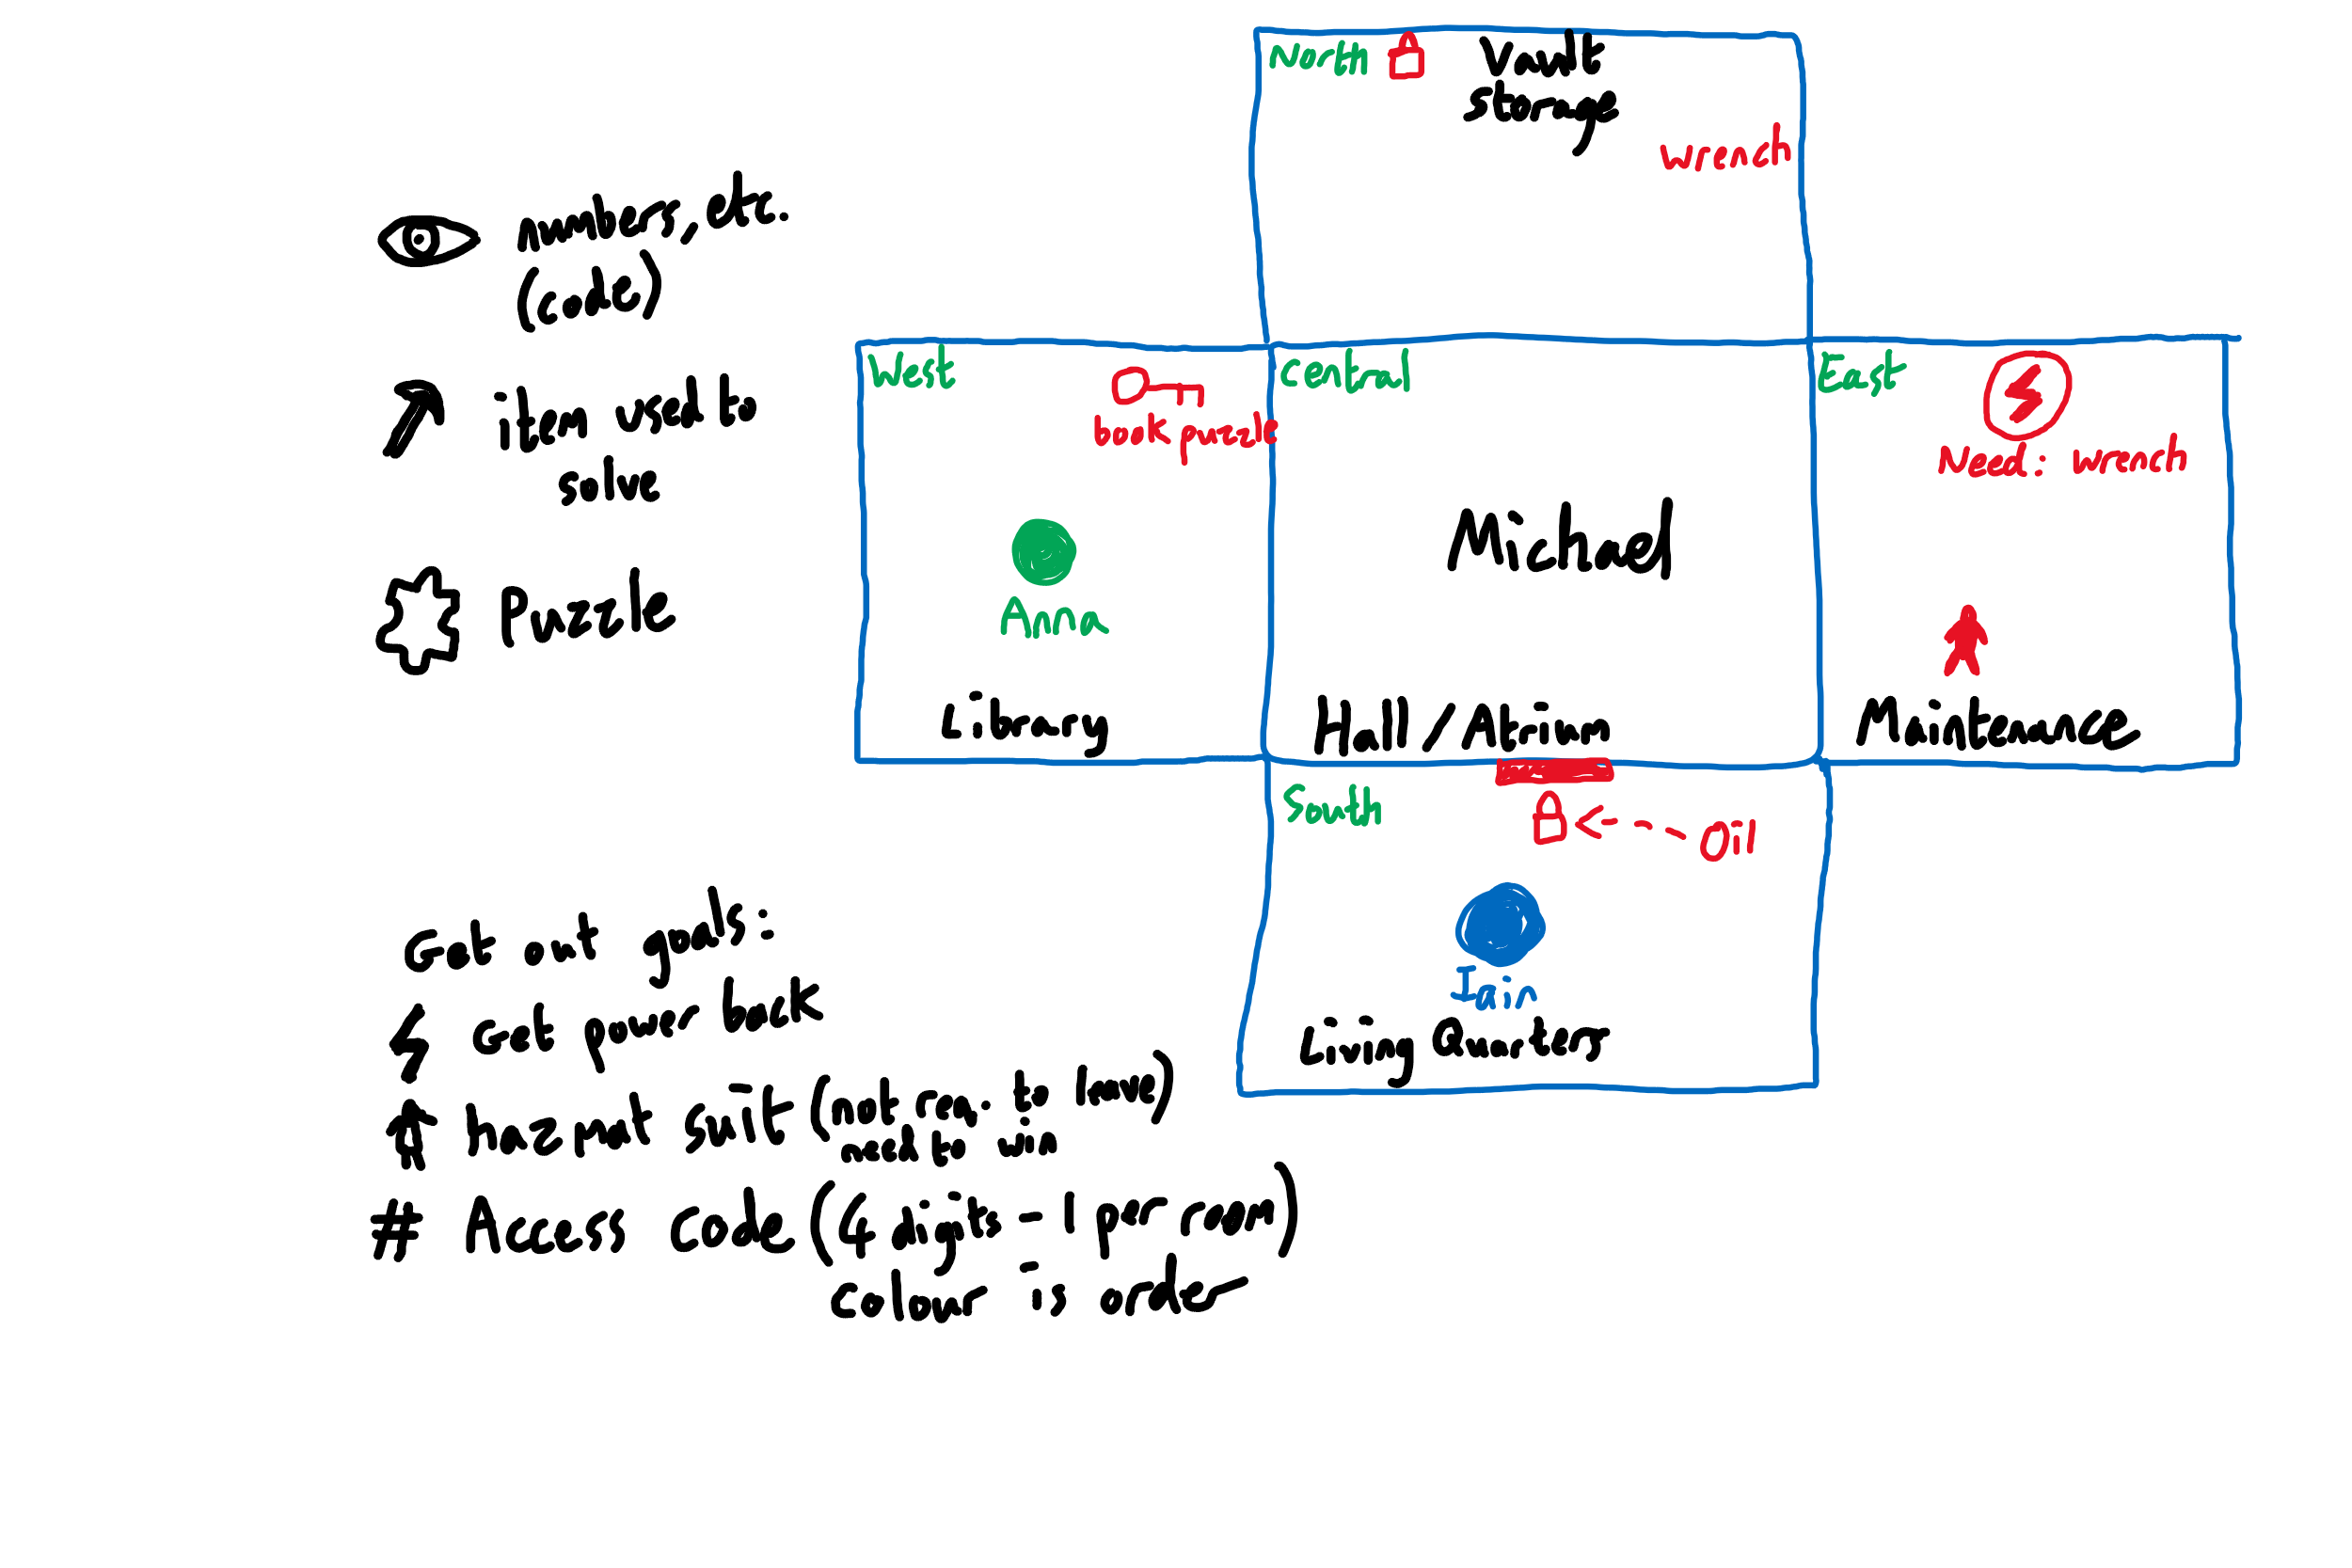 North
Vault
storage
wrench
numbers, etc.
(code)
item used to
solve
Puzzle
West
book puzzle
Anna
Library
Central
Michael
Hall/Atrium
East
Need: wrench
Maintenance
South
Oil
Iain
Living Quarters
Get out goals:
Get power back
hazmat suit (not req. to leave)
need to win
# Access code (4 digits - 1 per room)
colour is order